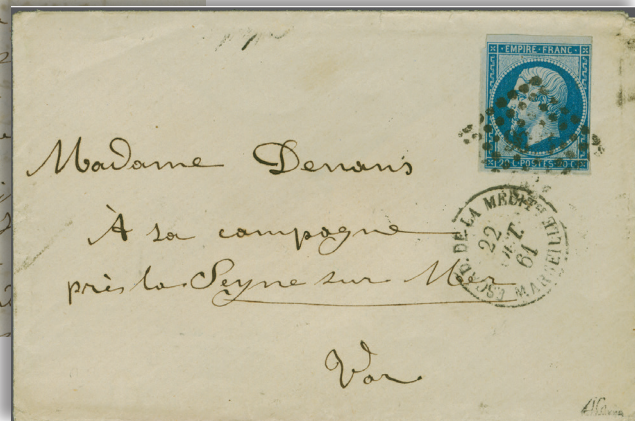 EMPIRE · FRANC ·
20 C · POSTES · 20 C
Madame Denans
À sa campagne
près la Seyne sur Mer
Var
ESCAD. DE LA MÉDIT. MARSEILLE
22
61